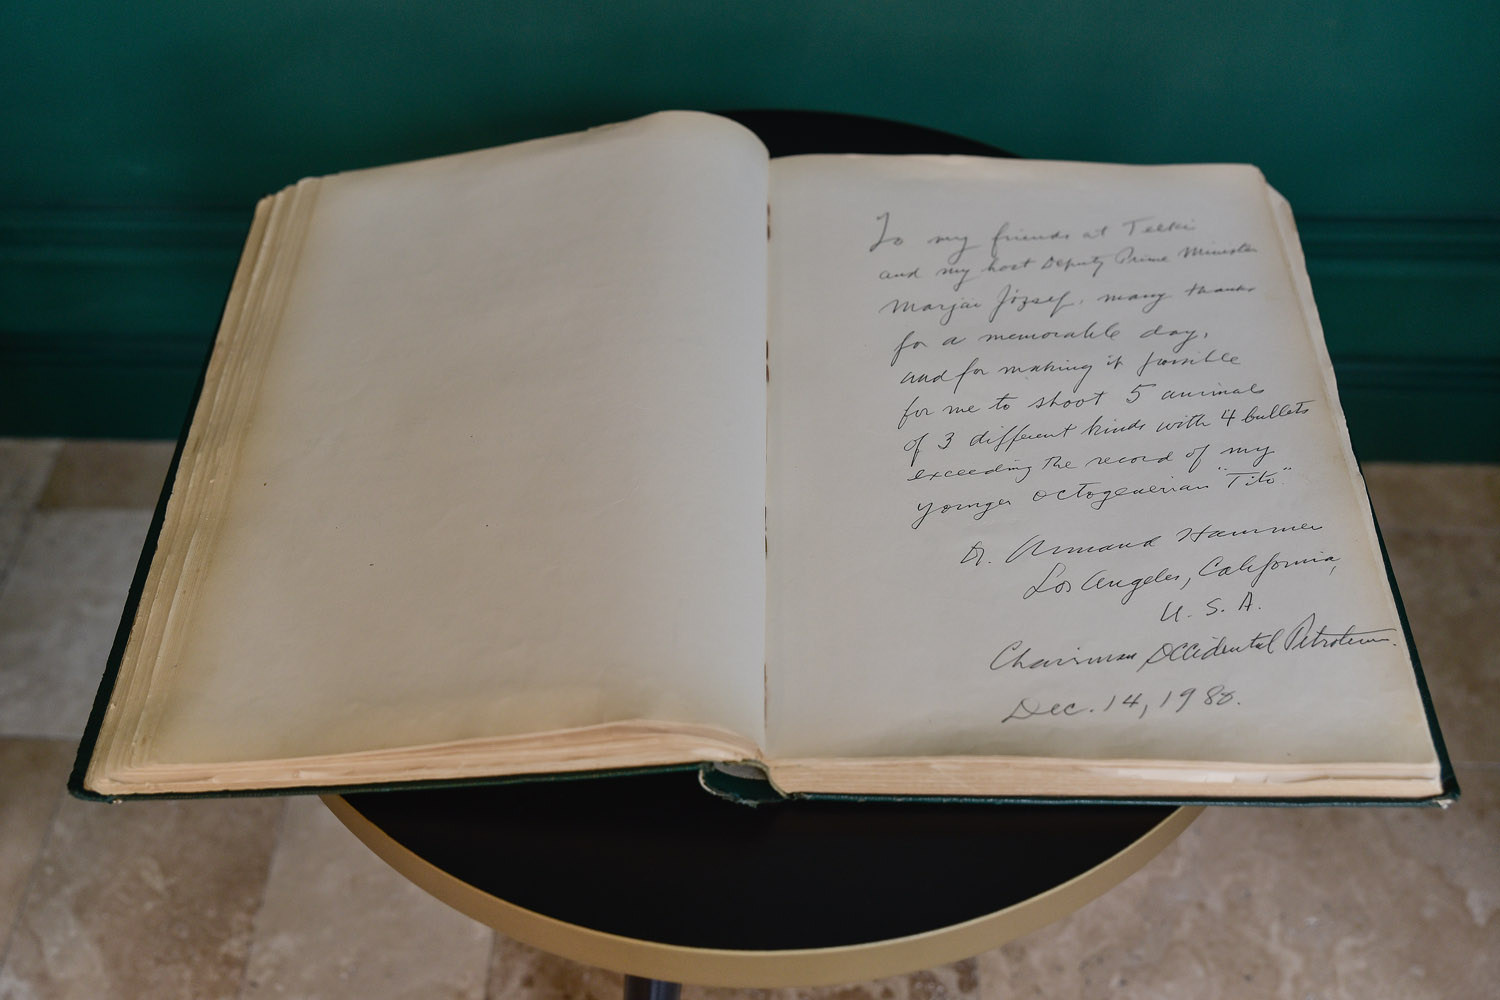 To my friends at Telki
and my host Deputy Prime Minister
Marjai József, many thanks
for a memorable day,
and for making it possible
for me to shoot 5 animals
of 3 different kinds with 4 bullets
exceeding the record of my
younger octogenerian "Tito"
Dr. Armand Hammer
Los Angeles, California,
U. S. A.
Chairman Occidental Petroleum.
Dec. 14, 1980.